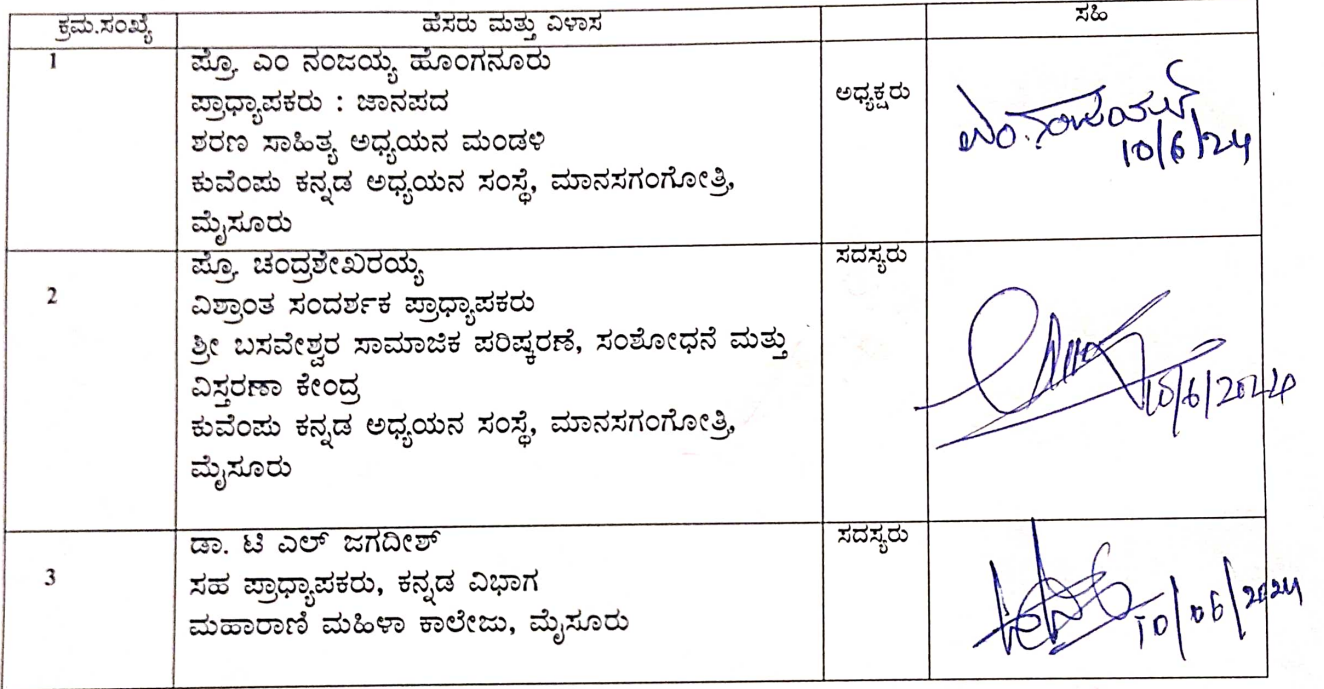 ಕ್ರಮ.ಸಂಖ್ಯೆ ಹೆಸರು ಮತ್ತು ವಿಳಾಸ ಸಹಿ
1 ಪ್ರೊ. ಎಂ ನಂಜಯ್ಯ ಹೊಂಗನೂರು
ಪ್ರಾಧ್ಯಾಪಕರು : ಜಾನಪದ
ಶರಣ ಸಾಹಿತ್ಯ ಅಧ್ಯಯನ ಮಂಡಳಿ
ಕುವೆಂಪು ಕನ್ನಡ ಅಧ್ಯಯನ ಸಂಸ್ಥೆ, ಮಾನಸಗಂಗೋತ್ರಿ,
ಮೈಸೂರು
ಅಧ್ಯಕ್ಷರು
ಎಂ.ನಂಜಯ್ಯ
10/6/24
2 ಪ್ರೊ. ಚಂದ್ರಶೇಖರಯ್ಯ
ವಿಶ್ರಾಂತ ಸಂದರ್ಶಕ ಪ್ರಾಧ್ಯಾಪಕರು
ಶ್ರೀ ಬಸವೇಶ್ವರ ಸಾಮಾಜಿಕ ಪರಿಷ್ಕರಣೆ, ಸಂಶೋಧನೆ ಮತ್ತು
ವಿಸ್ತರಣಾ ಕೇಂದ್ರ
ಕುವೆಂಪು ಕನ್ನಡ ಅಧ್ಯಯನ ಸಂಸ್ಥೆ, ಮಾನಸಗಂಗೋತ್ರಿ,
ಮೈಸೂರು
ಸದಸ್ಯರು
10/6/2024
3 ಡಾ. ಟಿ ಎಲ್ ಜಗದೀಶ್
ಸಹ ಪ್ರಾಧ್ಯಾಪಕರು, ಕನ್ನಡ ವಿಭಾಗ
ಮಹಾರಾಣಿ ಮಹಿಳಾ ಕಾಲೇಜು, ಮೈಸೂರು
ಸದಸ್ಯರು
10/06/2024